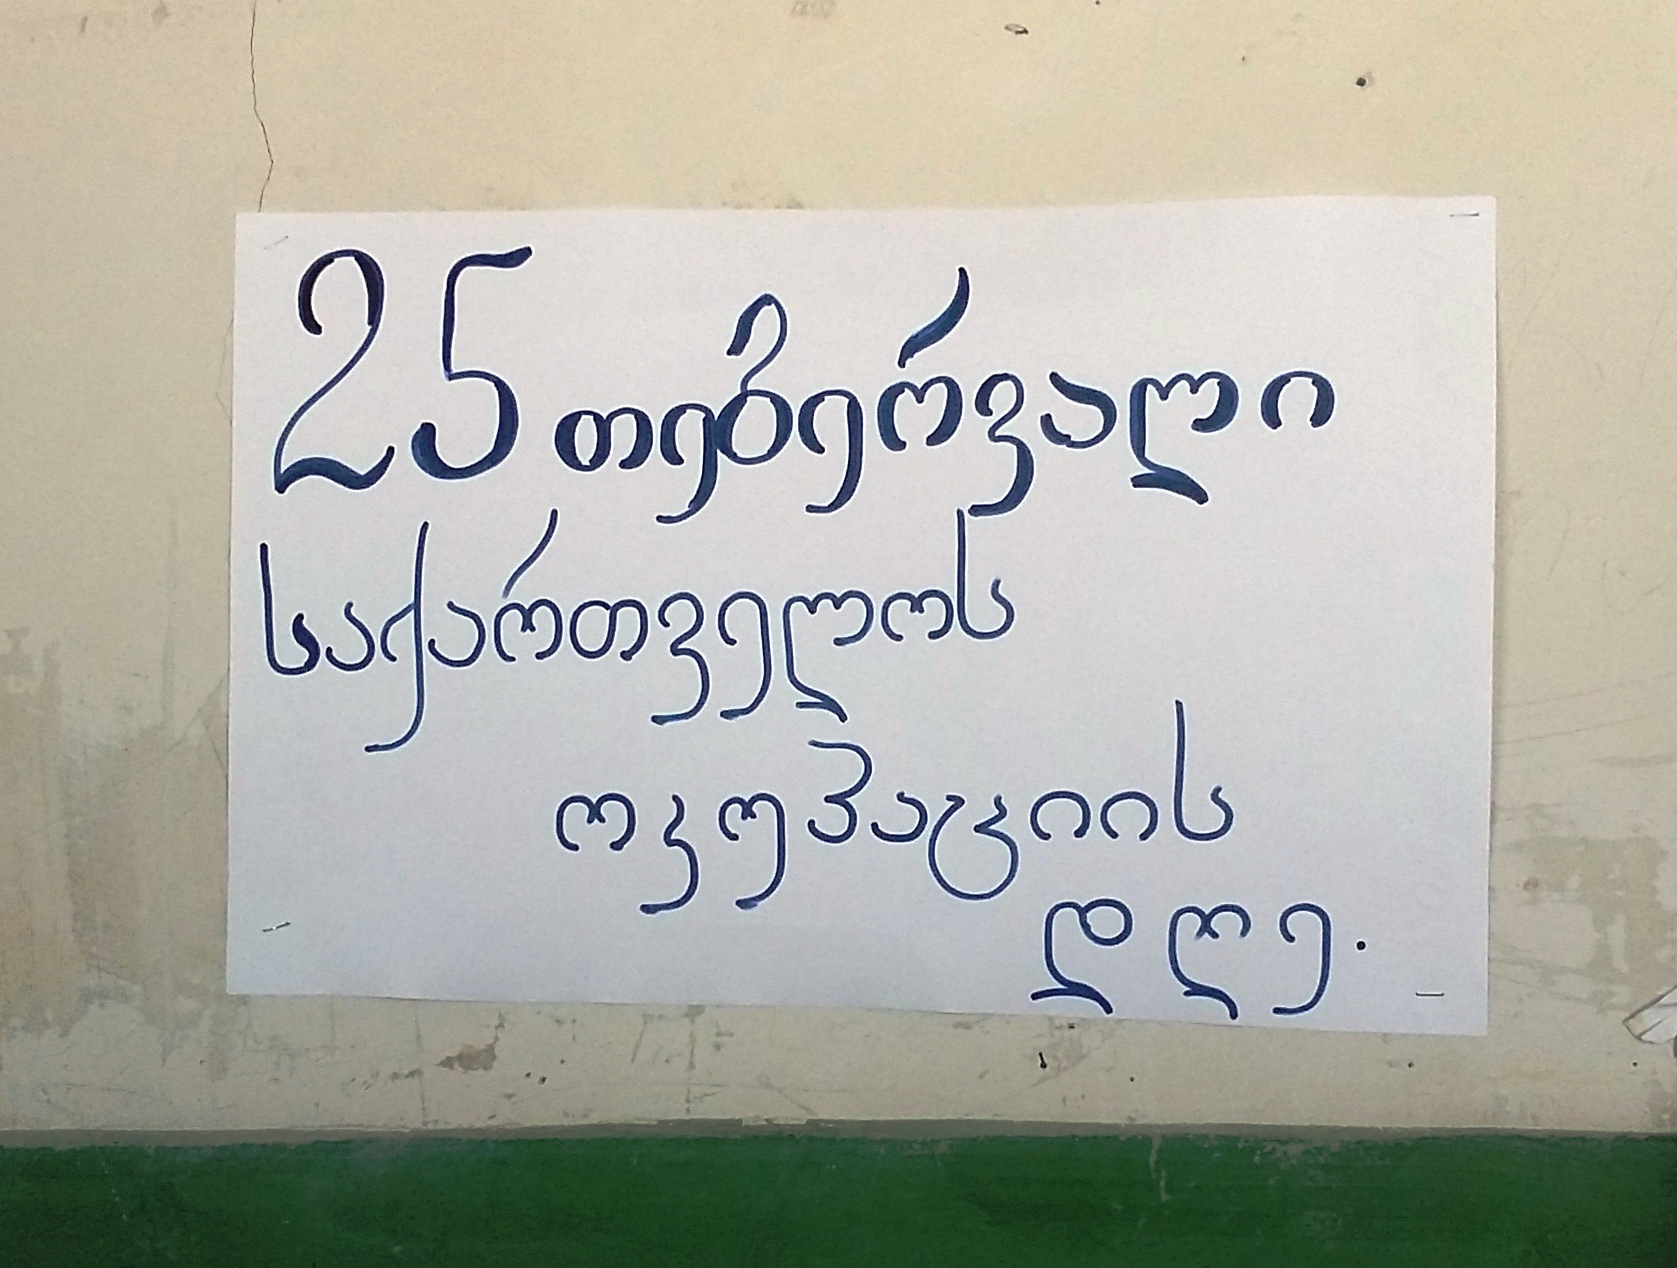 25 თებერვალი
საქართველოს
ოკუპაციის
დღე.